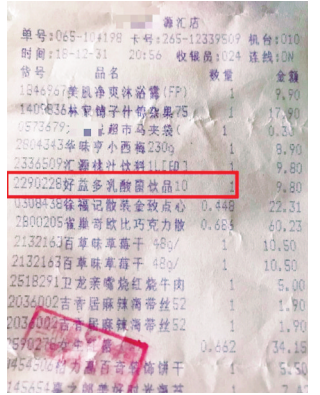 源汇店
单号:065-10#198 卡号:265-12339509 机台:010
时间:18-12-31 20:56 收银员:024 连线:ON
货号 品名 数量 金额
1846967美肌净爽沐浴露(FP) 1 9.90
1405836林家铺子什锦杂果75 1 17.90
0573679; 超市马夹袋( 1 0.30
2804343华味亨小西梅230g 1 8.90
2336509汇源桃汁饮料1L[ED] 1 9.80
2290228好益多乳酸菌饮品10 1 9.80
0308438徐福记散装金致点心 0.448 22.31
2800205雀巢奇欧比巧克力散 0.686 60.23
2132163百草味草莓干 48g/ 1 10.50
2132163百草味草莓干 48g/ 1 10.50
2518291卫龙亲嘴烧红烧牛肉 1 5.00
2036002吉香居麻辣海带丝52 1 1.90
2036002吉香居麻辣海带丝52 1 1.90
2590278 0.662 34.15
1454506格力高百奇装饰饼干 1 5.50
145654喜之郎美好时光海苔 1